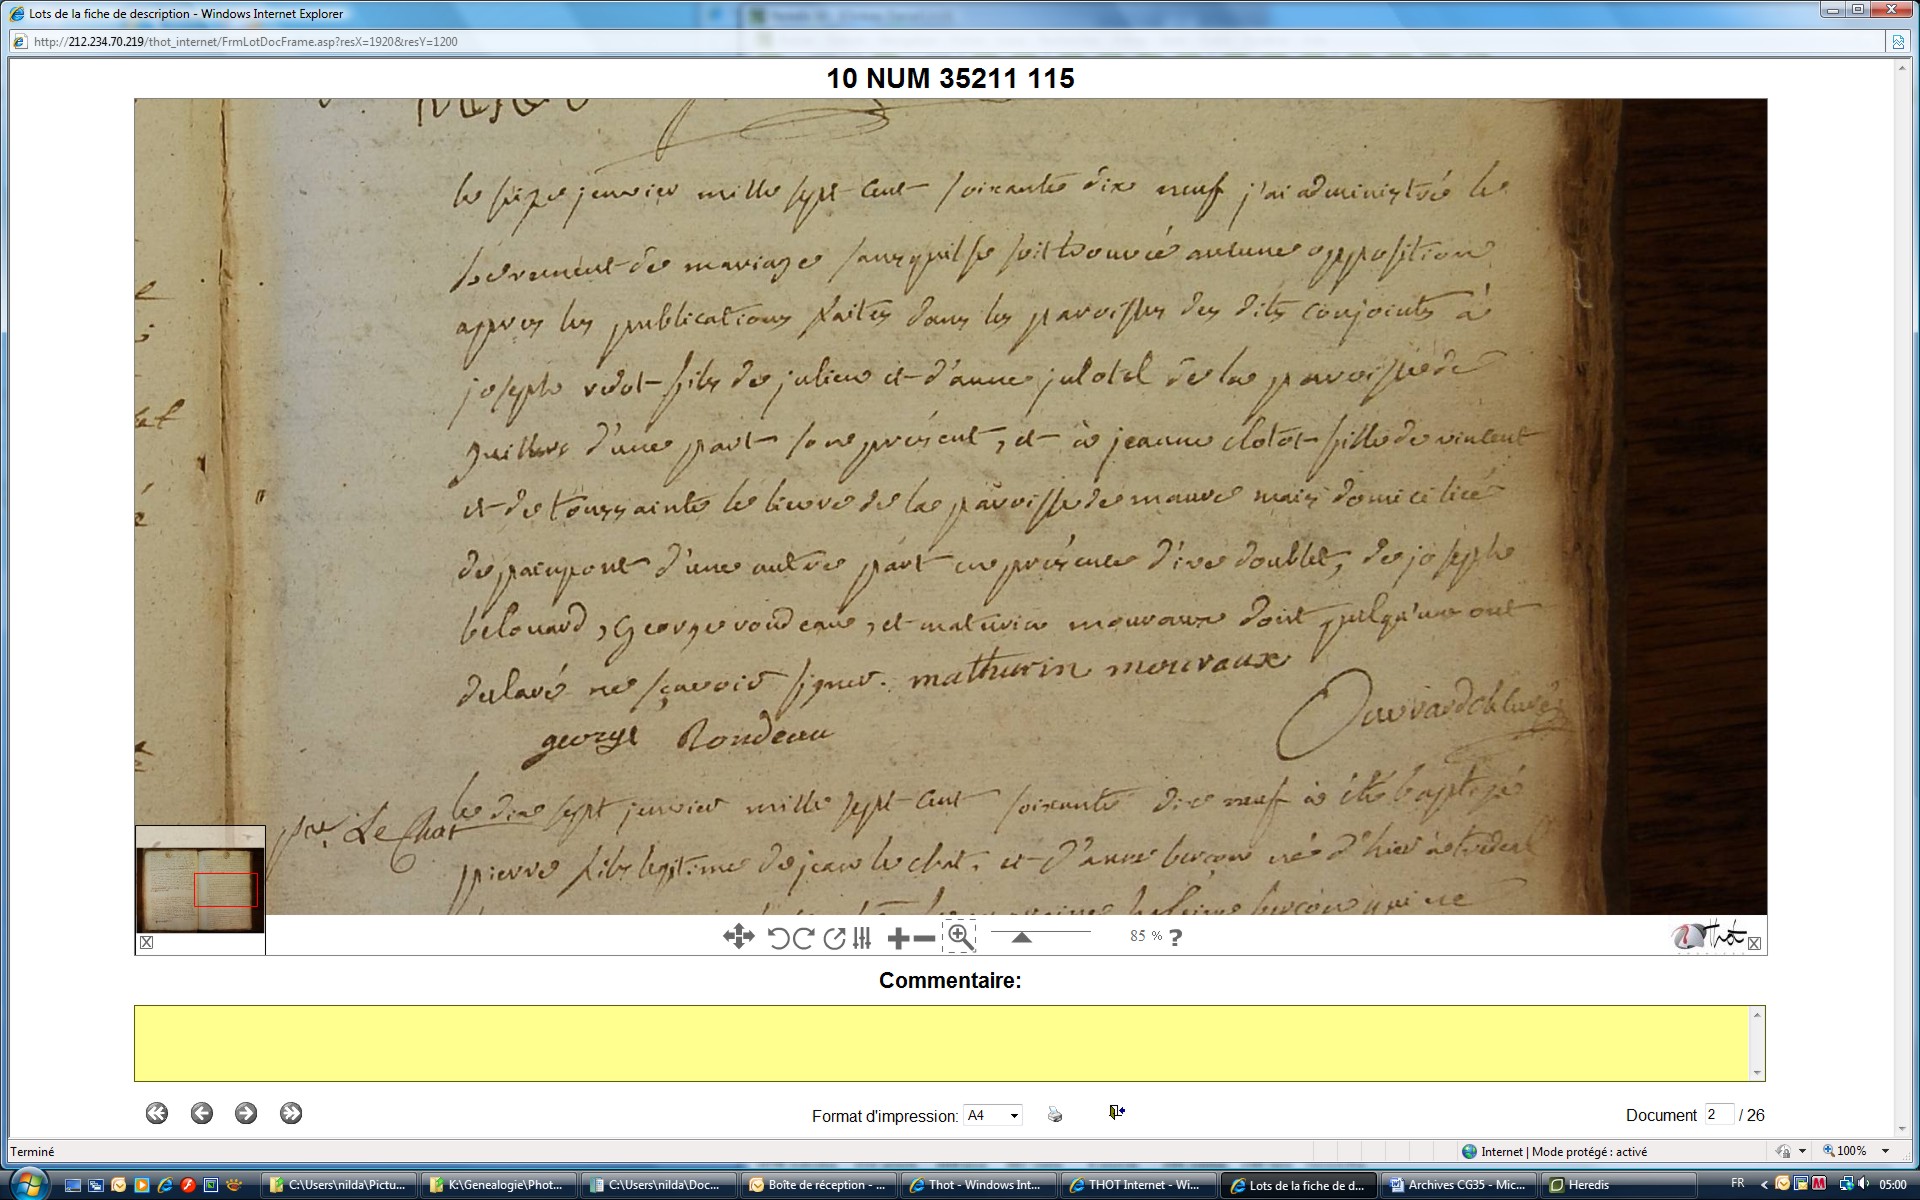 Lots de la fiche de description - Windows Internet Explorer
http://212.234.70.219/thot_internet/FrmLotDocFrame.asp?resX=1920&resY=1200
10 NUM 35211 115
le seize janvier mille sept cent soixante dix neuf j'ai administré le
sacrement de mariage sans qu'il se soit trouvée aucune opposition
apres les publications faites dans les paroisses des dits conjoints à
joseph vedot fils de julien et d'anne julotel de la paroisse de
guillers d'une part sone présent, et à jeanne clotot fille de vincent
et de toussainte le lievre de la paroisse de maure mais domiciliée
de paimpont d'une autre part en présence d'ive doublet, de joseph
belouard, George rondeau, et maturin mouraux dont quelqu'un ont
declaré ne sçavoir signer. mathurin mouraux
george Rondeau
le dix sept janvier mille sept cent soixante dix neuf a été baptizé
pre. Le Chat
pierre fils legitime de jean le chat, et d'anne berson né d'hier à
85 %
?
Thot
Commentaire:
Format d'impression: A4
Document 2 / 26
Terminé
Internet | Mode protégé : activé
100%
C:\Users\nilda\Pictu...
K:\Genealogie\Phot...
C:\Users\nilda\Doc...
Boîte de réception - ...
Thot - Windows Int...
THOT Internet - Wi...
Lots de la fiche de d...
Archives CG35 - Mic...
Heredis
FR
05:00